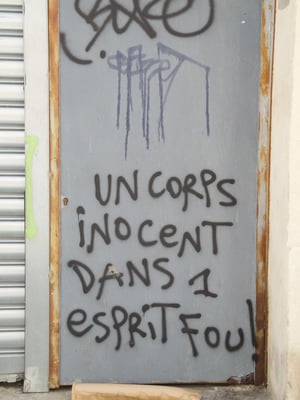 UN CORPS
iNOCENT
DANS 1
esPRiT FOU!